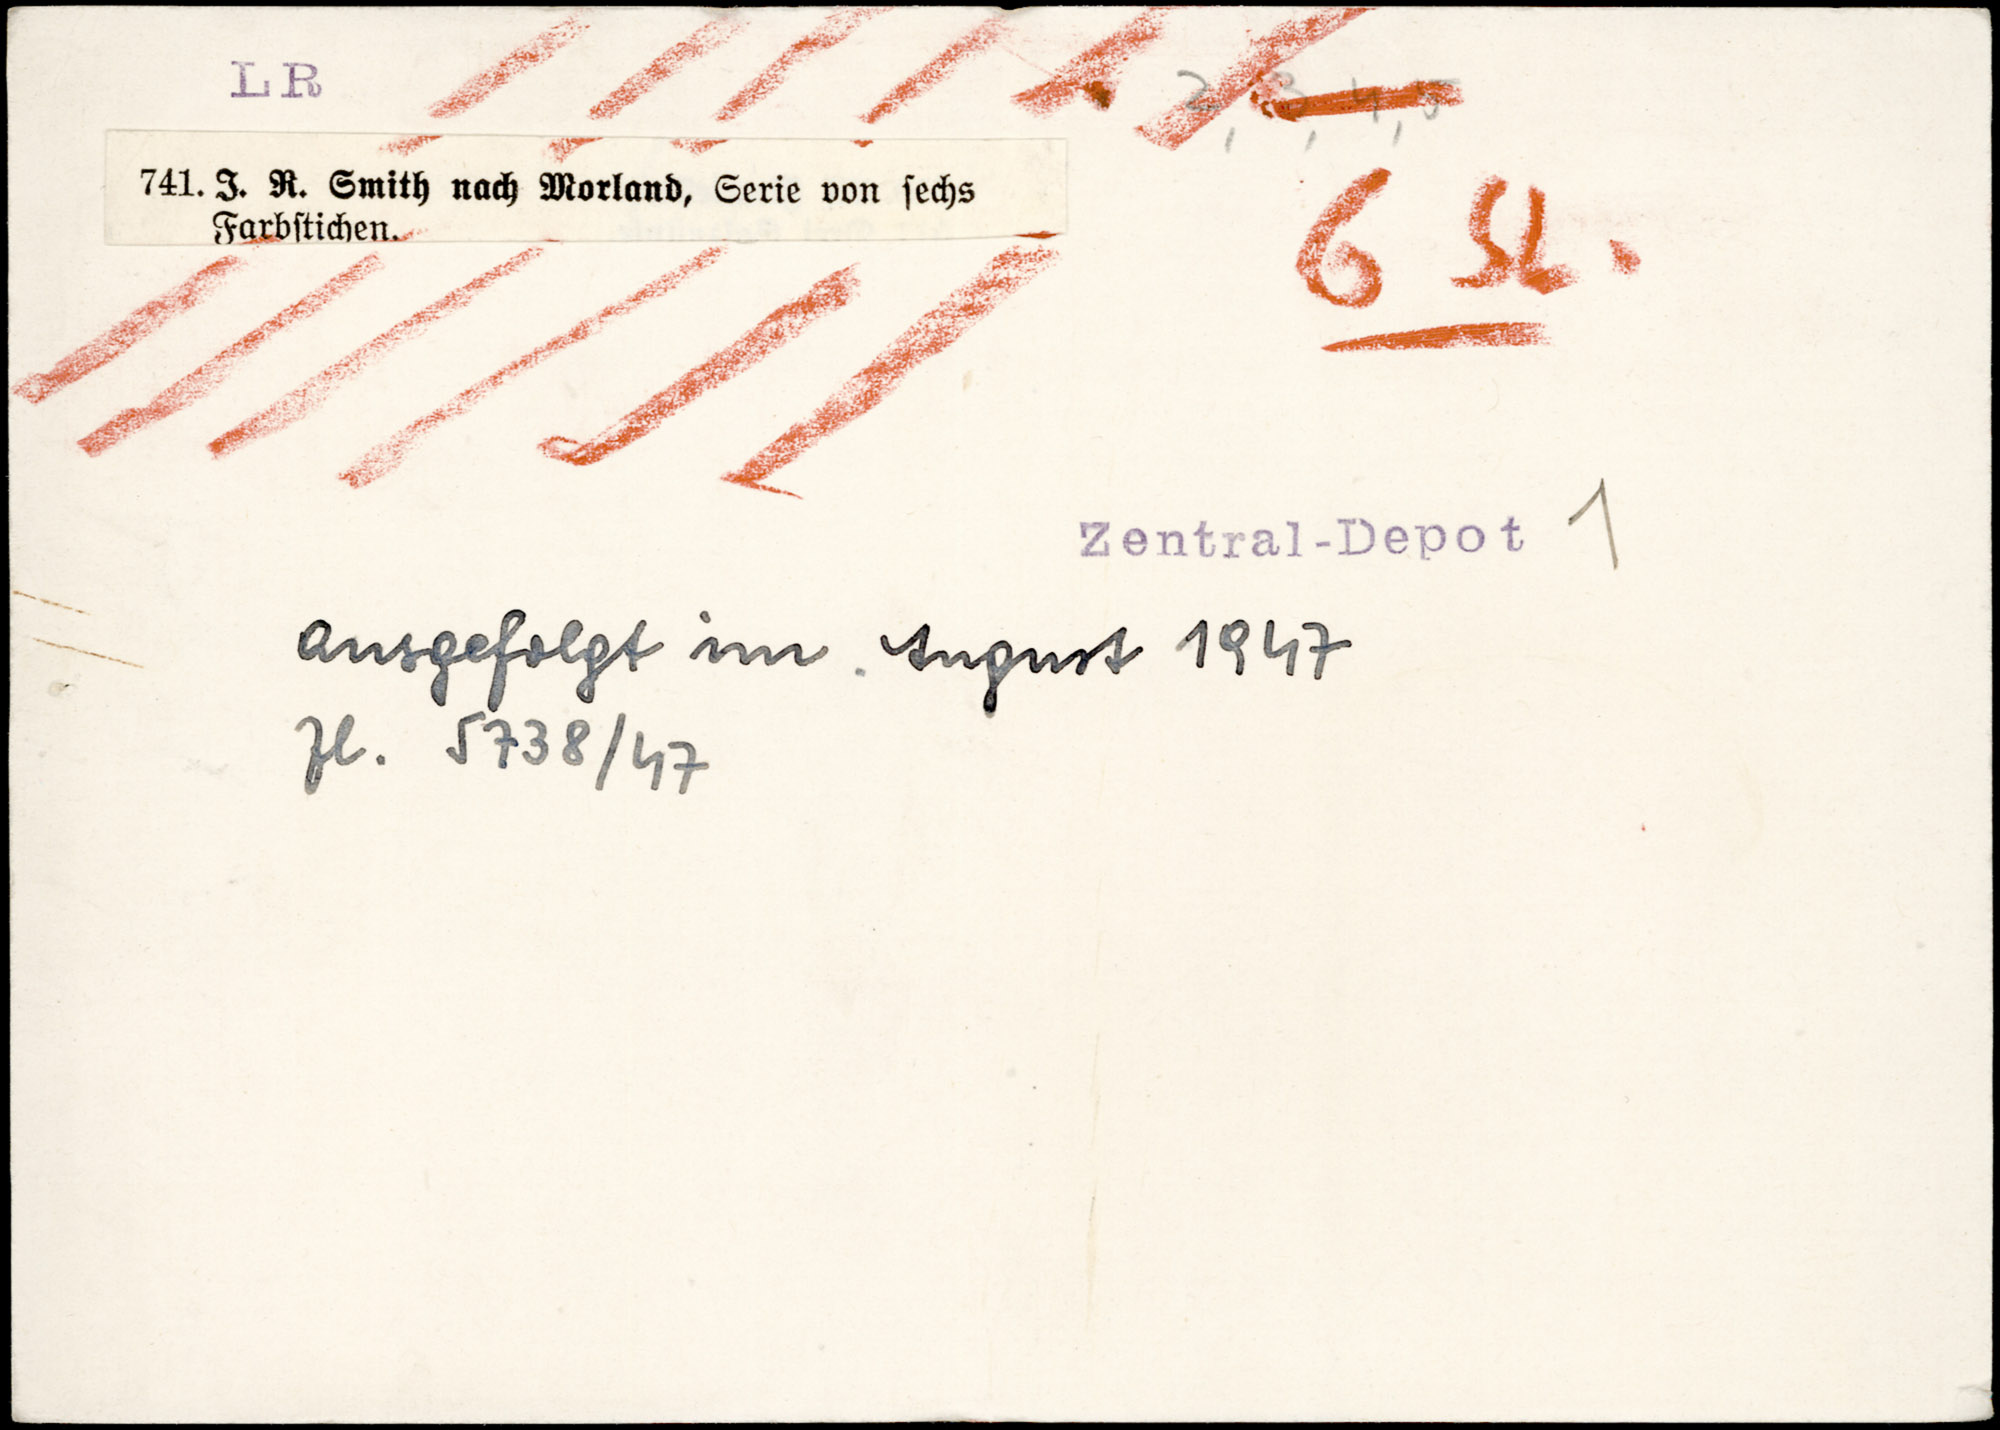 LR
2, 3, 4, 5
741. J. R. Smith nach Morland, Serie von sechs
Farbstichen.
6 St.
Zentral-Depot 1
ausgefolgt im August 1947
Zl. 5738/47